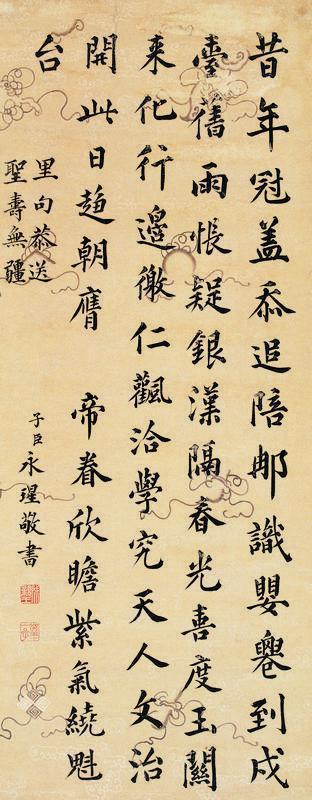 昔年冠盖忝追陪那識嬰到戍
臺舊雨悵疑銀漢隔春光喜度玉關
来化行邊徼仁飌洽學究天人文治
開此日趍朝膺 帝眷欣瞻紫氣繞魁
台
里向恭送
聖壽無疆
子臣永瑆敬書